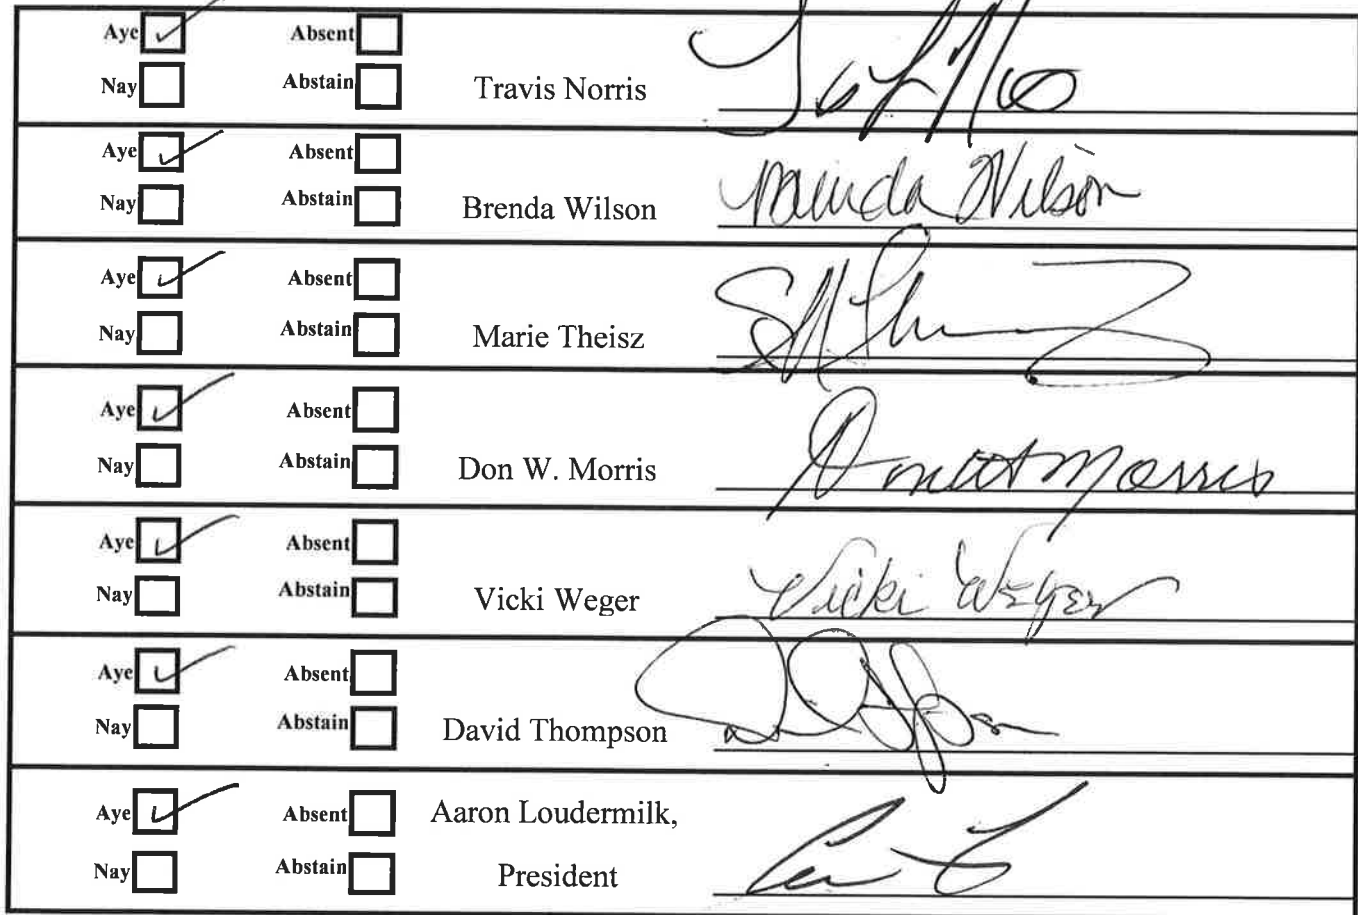 Aye Absent
Nay Abstain Travis Norris
Aye Absent
Nay Abstain Brenda Wilson Brenda Wilson
Aye Absent
Nay Abstain Marie Theisz
Aye Absent
Nay Abstain Don W. Morris Morris
Aye Absent
Nay Abstain Vicki Weger Vicki Weger
Aye Absent
Nay Abstain David Thompson
Aye Absent Aaron Loudermilk,
Nay Abstain President